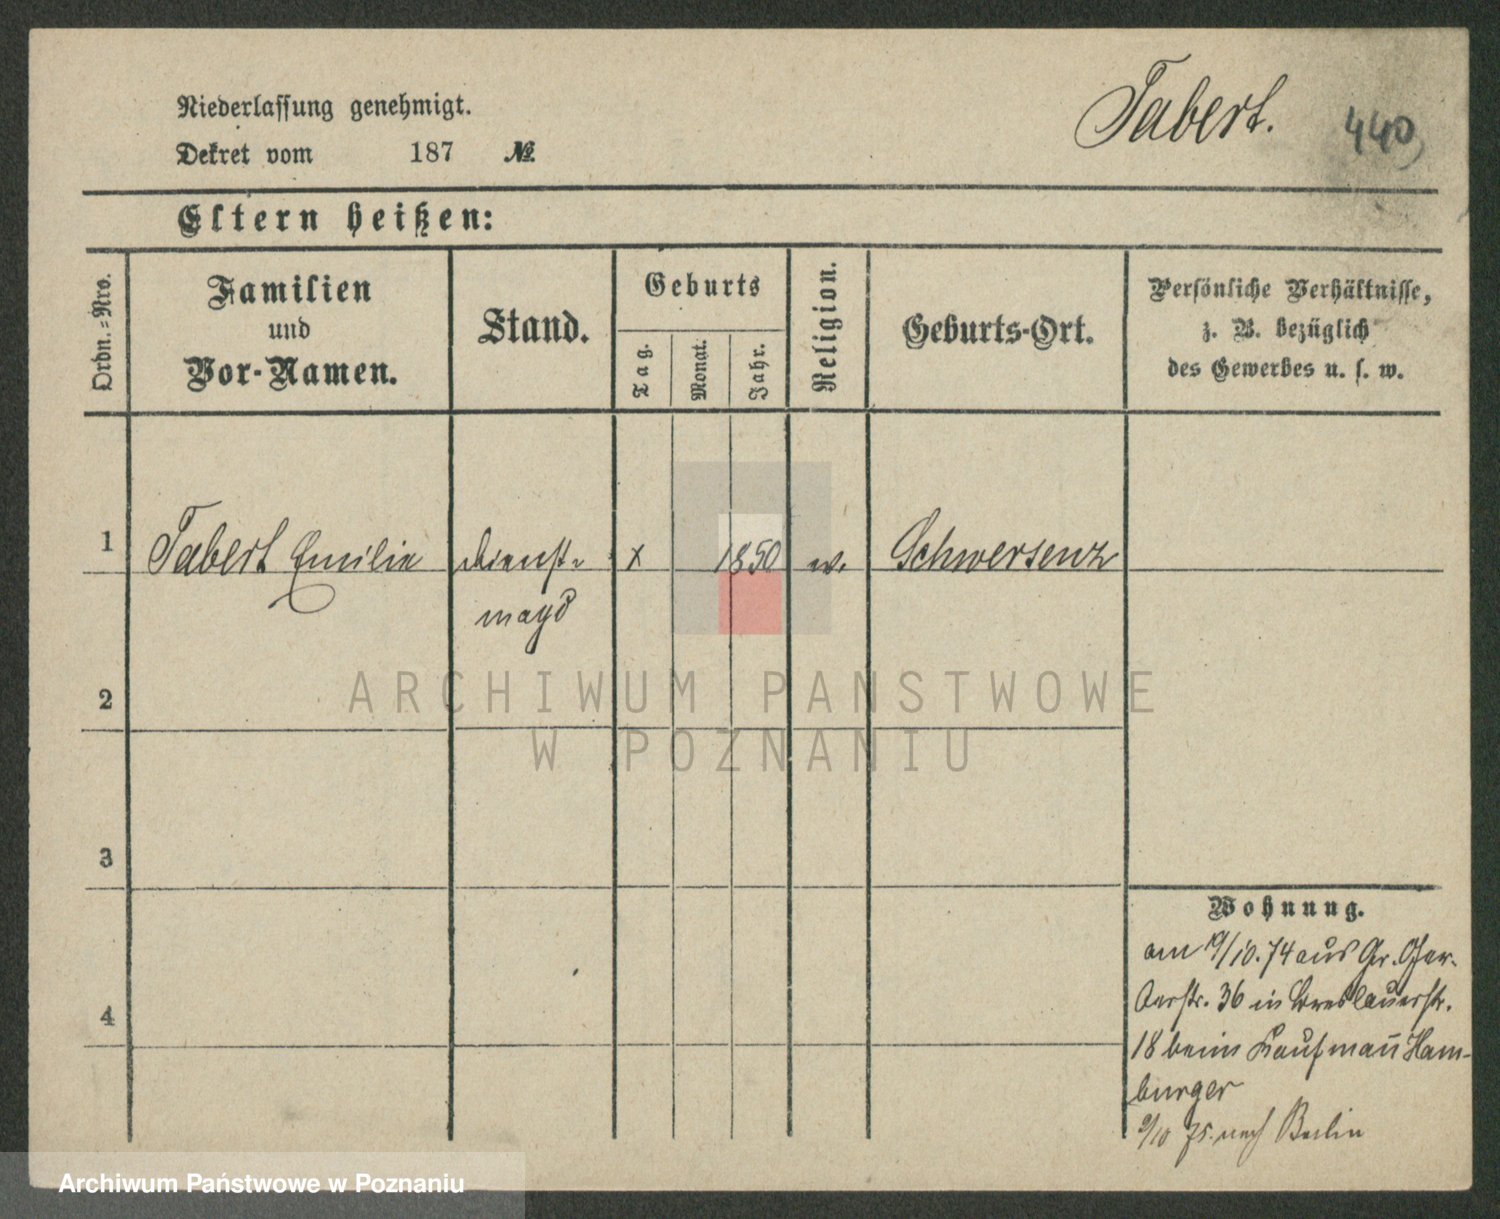 Niederlassung genehmigt.
Dekret vom 187 №
Tabert.
440
Eltern heißen:
Ordn.=Nro.
Familien
und
Vor-Namen.
Stand.
Geburts
Tag.
Monat.
Jahr.
Religion.
Geburts-Ort.
Persönliche Verhältnisse,
z. B. bezüglich
des Gewerbes u. s. w.
1 Tabert Emilie Dienst- x 1850 w. Schwersenz
magd
2
3
4
Wohnung.
am 19/10.74 aus Gr. Ger-
berstr. 36 in Breslauerstr.
18 beim Kaufmañ Ham-
burger
/10 75. nach Berlin
ARCHIWUM PAŃSTWOWE
W POZNANIU
Archiwum Państwowe w Poznaniu